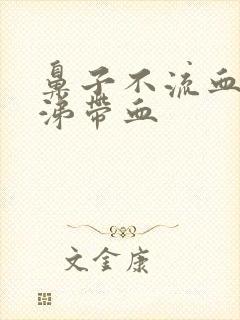 鼻子不流血
涕带血
文金康